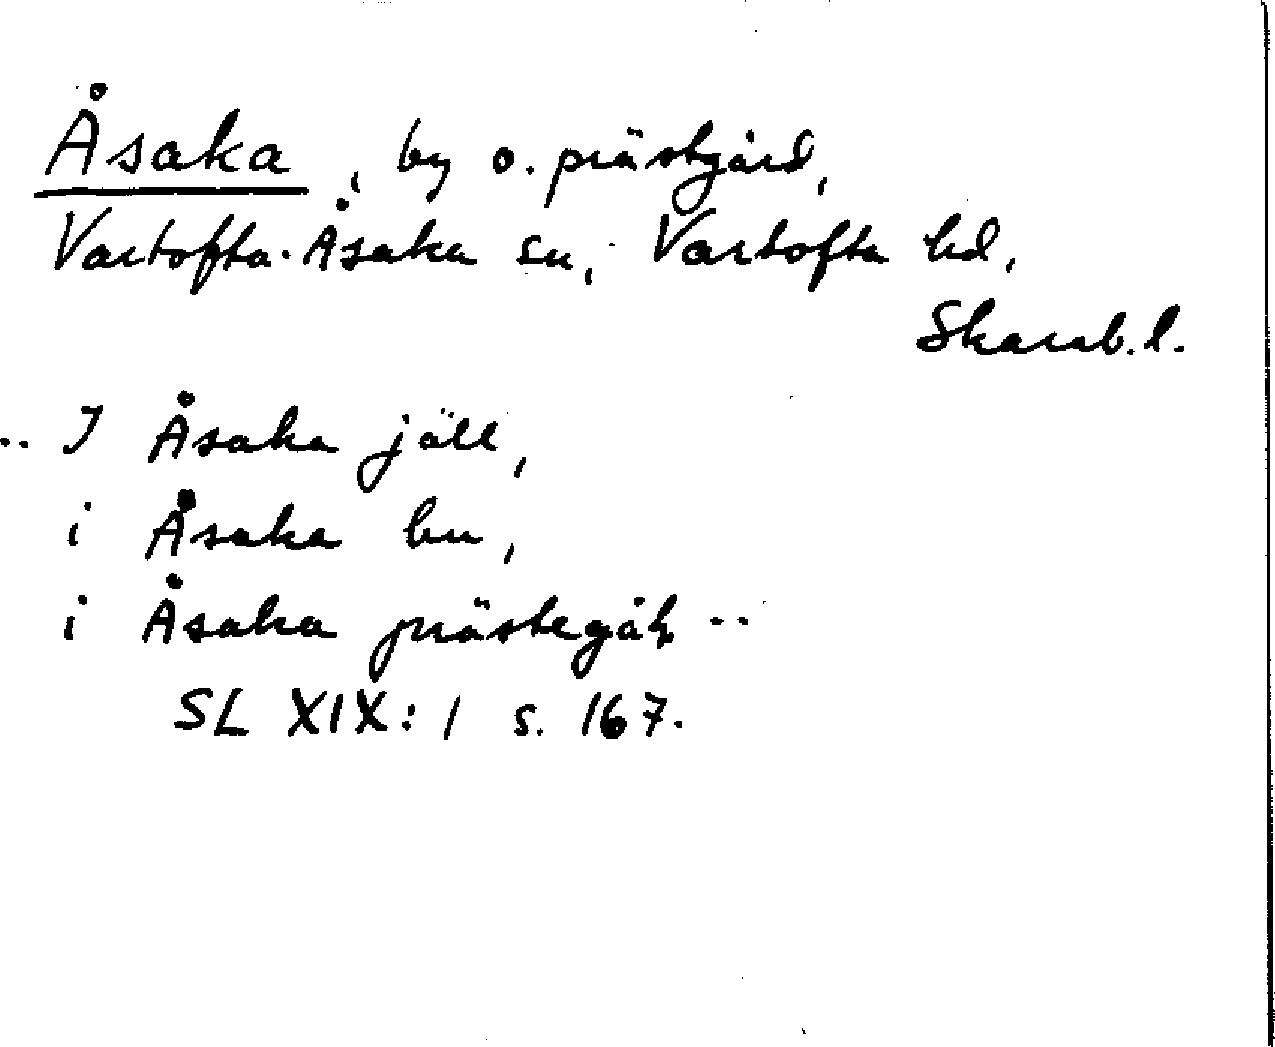 Åsaka, by o. prästgård,
Vartofta-Åsaka sn, Vartofta hd,
Skarab.l.
.. I Åsaka jäll,
i Åsaka bu,
i Åsaka prästegåk ..
SL XIX:1 s. 167.